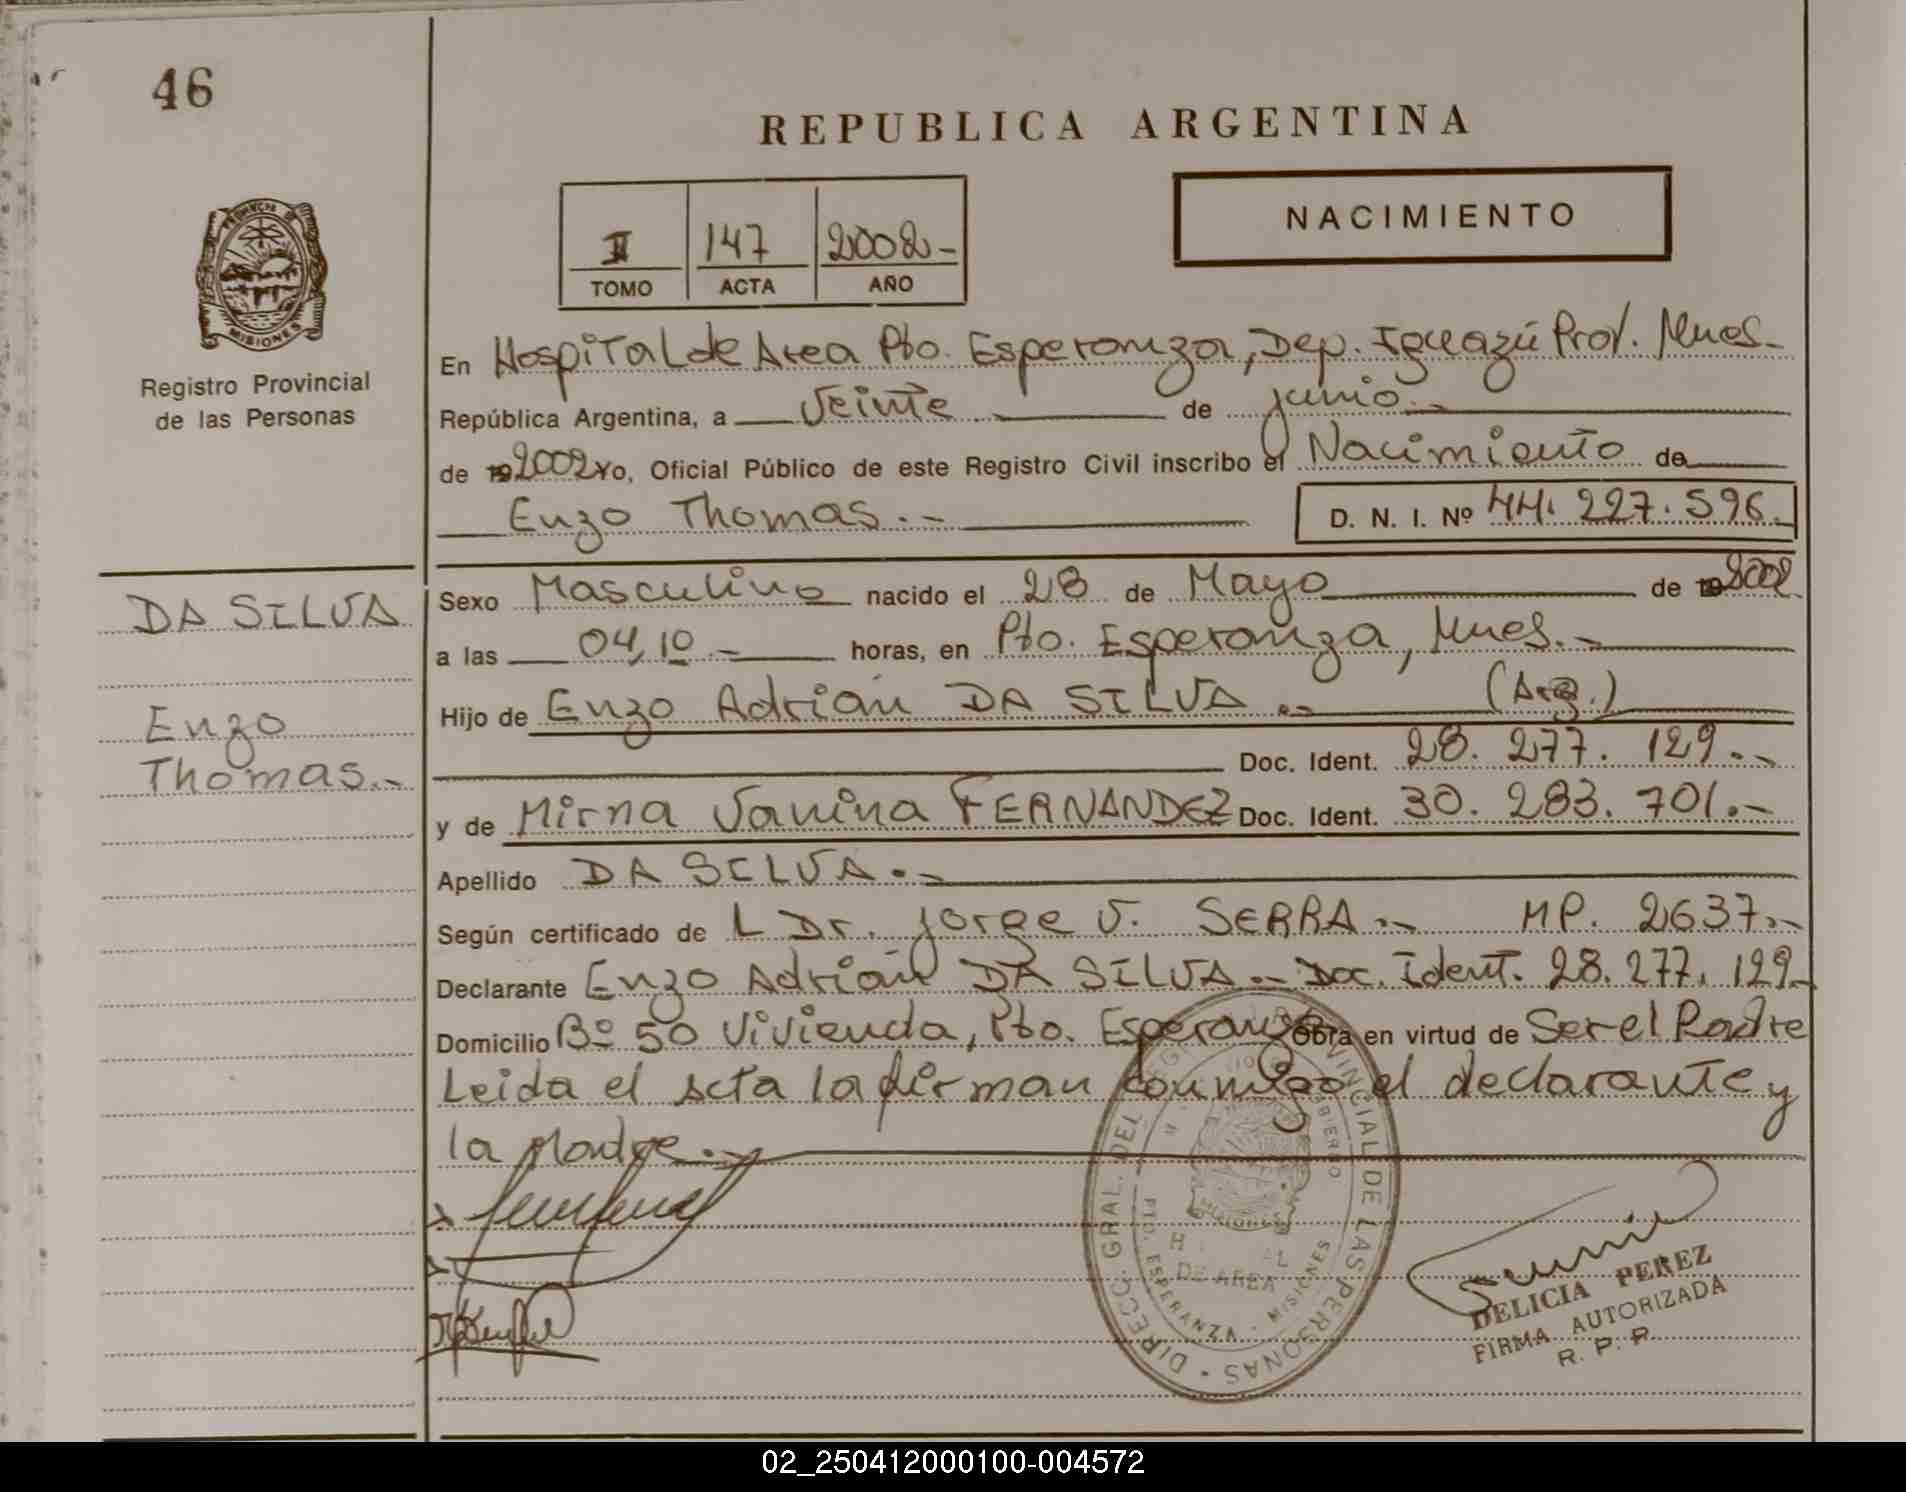 46
REPUBLICA ARGENTINA
NACIMIENTO
II 147 2002-
TOMO ACTA AÑO
PROVINCIA DE
MISIONES
Registro Provincial
de las Personas
En Hospital de Area Pto. Esperanza, Dep. Iguazú Prov. Mnes.-
República Argentina, a veinte de junio.-
de 192002 Yo, Oficial Público de este Registro Civil inscribo el Nacimiento de
Enzo Thomas.-
D. N. I. Nº 44.227.596.
DA SILVA
Enzo
Thomas.-
Sexo Masculino nacido el 28 de Mayo de 192002
a las 04,10.- horas, en Pto. Esperanza, Mnes.-
Hijo de Enzo Adrián DA SILVA.- (Arg.)
Doc. Ident. 28.277.129.-
y de Mirna Vanina FERNANDEZ Doc. Ident. 30.283.701.-
Apellido DA SILVA.-
Según certificado de L Dr. Jorge V. SERRA.- MP. 2637.-
Declarante Enzo Adrián DA SILVA.- Doc. Ident. 28.277.129-
Domicilio Bº 50 Vivienda, Pto. Esperanza Obra en virtud de Ser el Padre
Leida el acta la firman conmigo el declarante y
la Madre.-
DIRECC. GRAL. DEL PROVINCIAL DE LAS PERSONAS
DE AREA
PTO. ESPERANZA - MISIONES
DELICIA PEREZ
FIRMA AUTORIZADA
R. P. P.
02_250412000100-004572